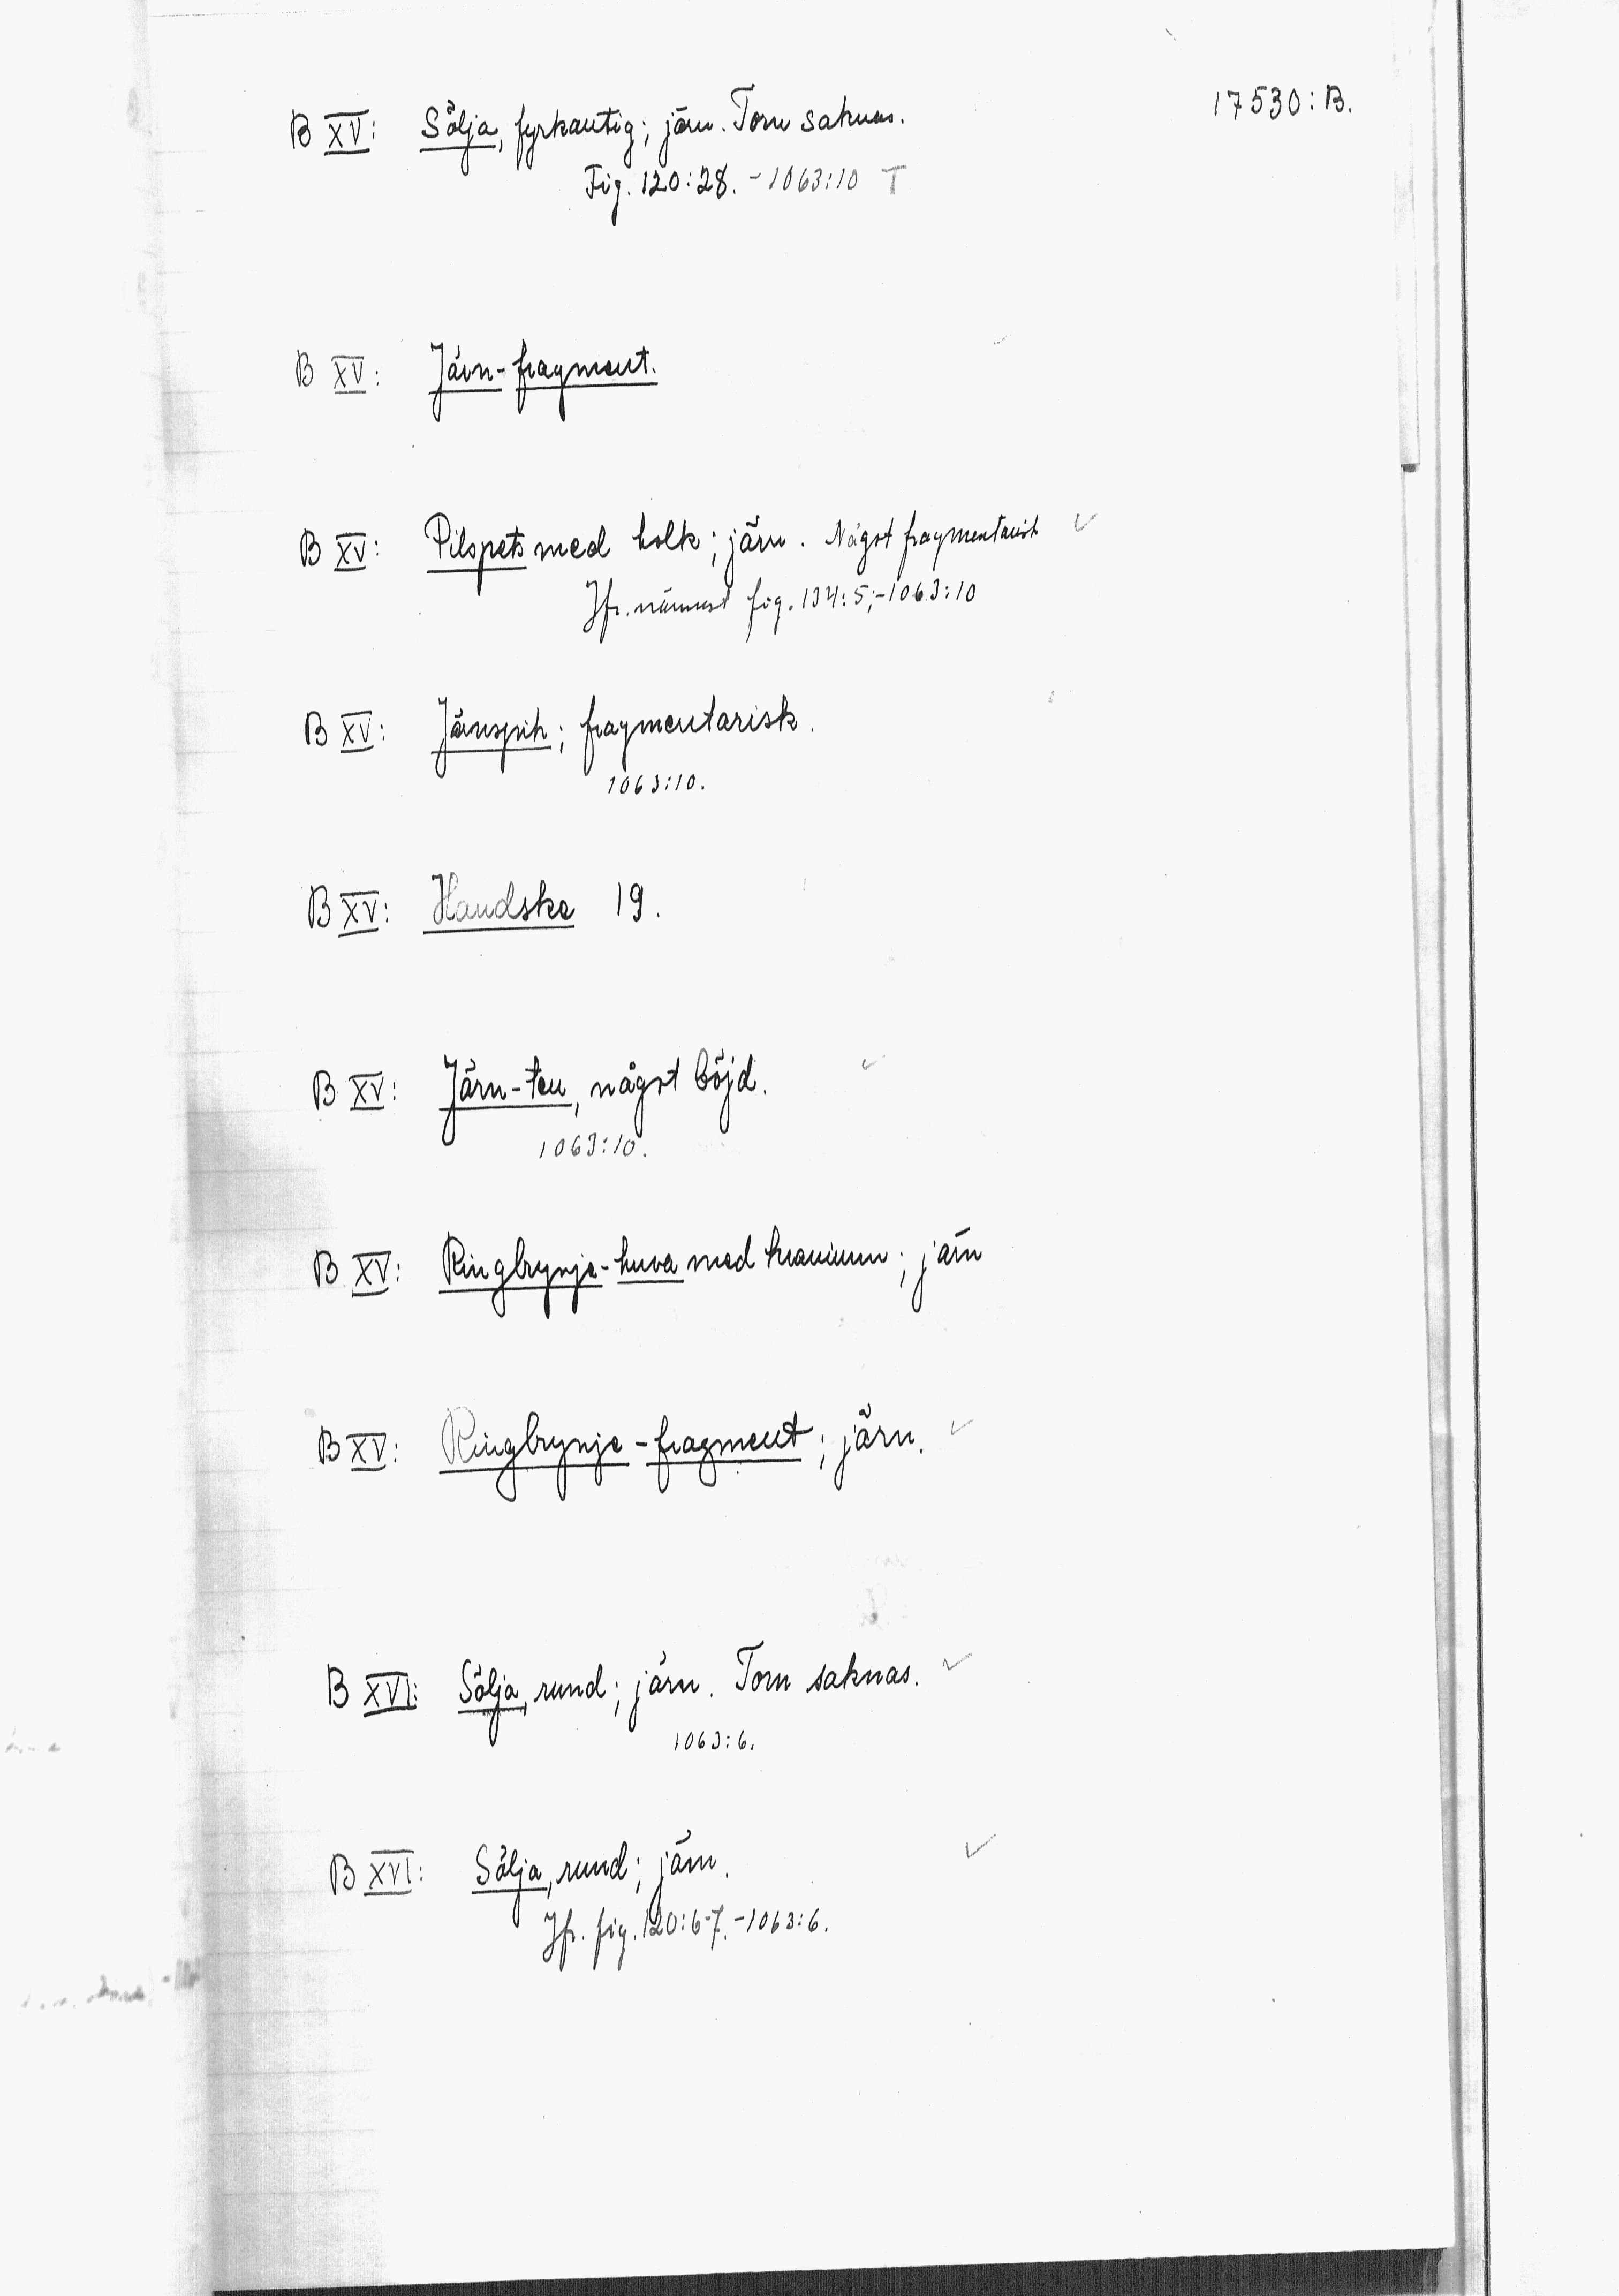 17530:B.
B XV: Sölja, fyrkantig; järn. Torn saknas.
Fig. 120:28. - 1063:10 T
B XV: Järn-fragment.
B XV: Pilspets med holk; järn. Något fragmentarisk
Jfr. närmast fig. 134:5; - 1063:10
B XV: Järnspik; fragmentarisk.
1063:10.
B XV: Handske 19.
B XV: Järn-ten, något böjd.
1063:10.
B XV: Ringbrynje-huva med kranium; järn
B XV: Ringbrynje-fragment; järn.
B XVI: Sölja, rund; järn. Torn saknas.
1063:6.
B XVI: Sölja, rund; järn.
Jfr. fig. 120:6-7. - 1063:6.